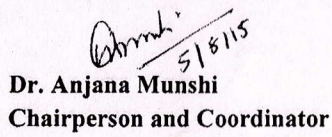 5/8/15
Dr. Anjana Munshi
Chairperson and Coordinator